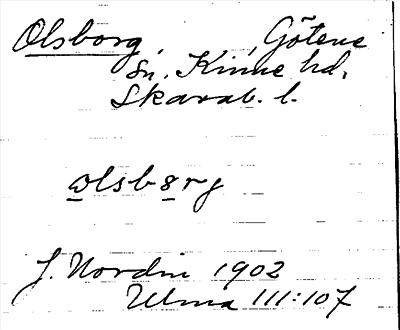 Olsborg, Götene
sn. Kinne hd.
Skarab. l.
olsbərg
J. Nordin 1902
Ulma 111:107